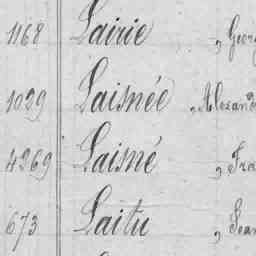 1168 Lairie „ Geor
1029 Laisnée „ Alexan
4269 Laisné „ Fra
673 Laitu „ Jean